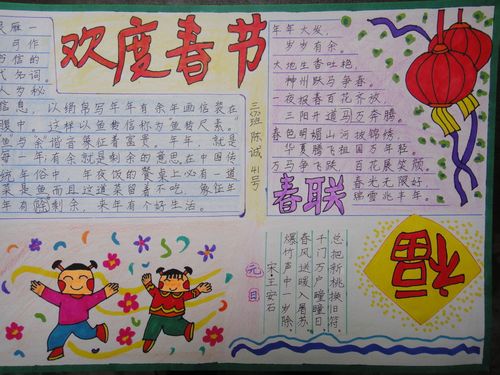 欢度春节
灵雁一
可作
书信的
代名词。
人岁秘
信息，以绢帛写年年有余年画信装在
眼中。这样以鱼转信称为"鱼转尺素。"
鱼与余谐音象征着富贵，年年，就是
每一年有余就是剩余的意思在中国传
统年俗中，年夜饭的餐桌上必有一道
菜是鱼而且这道菜留着不吃，象征年
年有剩余，来年有个好生活。
三(3)班 陈诚 41号
年年大发，
岁岁有余。
大地生香吐艳，
神州跃马争春。
一夜报春百花齐放，
三阳开道马万奔腾。
春色明媚山河披锦绣，
华夏腾飞祖国万年轻。
万马争飞跃，百花展笑颜。
春光无限好，
瑞雪兆丰年。
春联
元日
宋王安石
爆竹声中一岁除
春风送暖入屠苏。
千门万户曈曈日，
总把新桃换旧符。
福